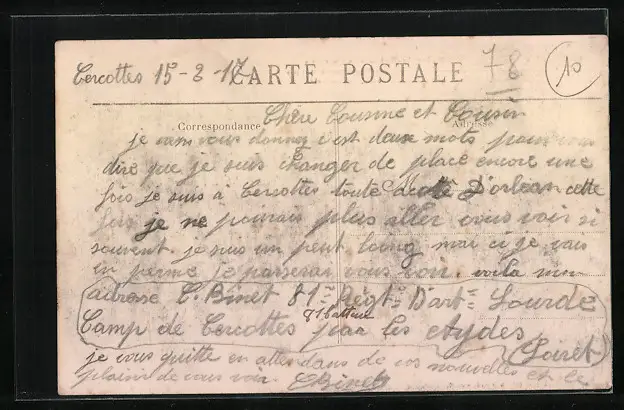 Cercottes 15-2-17 CARTE POSTALE 78 10
Chère Cousine et Cousin
Correspondance Adresse
je vous donnez c'est deux mots pour vous
dire que je suis changer de place encore une
fois je suis à Cercottes toute D'orlean cette
fois je ne pourais plus aller vous voir si
souvent je suis un peut loing mai ci je vais
en perme je passerai vous voir. voila mon
adrese C. Binet 81e Régt D'art Lourde
81 batterie
Camp de Cercottes par les Aydes
(Loiret)
je vous quitte en attendans de vos nouvelles et le
plaisir de vous voir. CBinet